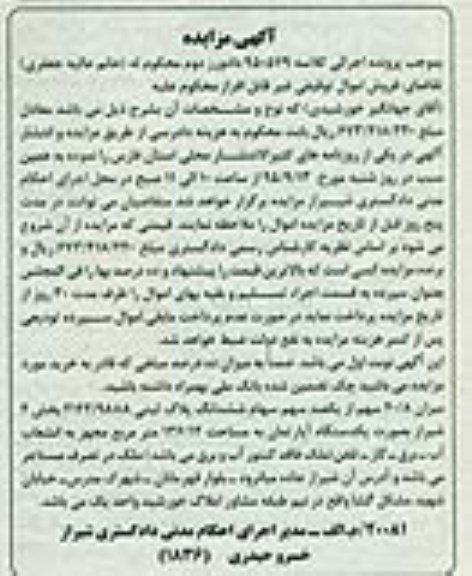 آگهی مزایده
بموجب پرونده اجرائی کلاسه ۹۵۰۵۶۹ دادورز دوم محکوم له (خانم عالیه جعفری)
تقاضای فروش اموال توقیفی غیر قابل افراز محکوم علیه
(آقای جهانگیر خورشیدی) که نوع و مشخصات آن بشرح ذیل می باشد معادل
مبلغ ۶۷۳/۴۱۸/۳۳۰ ریال بابت محکوم به هزینه دادرسی از طریق مزایده و انتشار
آگهی در یکی از روزنامه های کثیرالانتشار محلی استان فارس را نموده به همین
سبب در روز شنبه مورخ ۹۵/۹/۱۳ از ساعت ۱۰ الی ۱۱ صبح در محل اجرای احکام
مدنی دادگستری شیراز مزایده برگزار خواهد شد متقاضیان می توانند در مدت
پنج روز قبل از تاریخ مزایده اموال را ملاحظه نمایند. قیمتی که مزایده از آن شروع
می شود بر اساس نظریه کارشناس رسمی دادگستری مبلغ ۶۷۳/۴۱۸/۳۳۰ ریال و
برنده مزایده کسی است که بالاترین قیمت را پیشنهاد و ده درصد بها را فی المجلس
بعنوان سپرده به قسمت اجراء تسلیم و بقیه بهای اموال را ظرف مدت ۳۰ روز از
تاریخ مزایده پرداخت نماید در صورت عدم پرداخت مابقی اموال سپرده تودیعی
پس از کسر هزینه مزایده به نفع دولت ضبط خواهد شد.
این آگهی نوبت اول می باشد. ضمناً به میزان ده درصد مبلغی که قادر به خرید مورد
مزایده می باشید چک تضمین شده بانک ملی بهمراه داشته باشید.
میزان ۲۰/۸ سهم از یکصد سهم سهام ششدانگ پلاک ثبتی ۲۱۴۲/۹۸۸۸ بخش ۴
شیراز بصورت یکدستگاه آپارتمان به مساحت ۱۳۶/۱۴ متر مربع مجهز به انشعاب
آب ـ برق ـ گاز ـ تلفن (ملک فاقد کنتور آب و برق می باشد) ملک در تصرف مستاجر
می باشد و آدرس آن شیراز جاده میانرود ـ بلوار قهرمانان ـ شهرک مدرس ـ خیابان
شهید مشکل گشا واقع در نیم طبقه مشاور املاک خورشید واحد یک می باشد.
۲۰۰۸۱/م الف ــ مدیر اجرای احکام مدنی دادگستری شیراز
خسرو حیدری (۱۸۳۶)